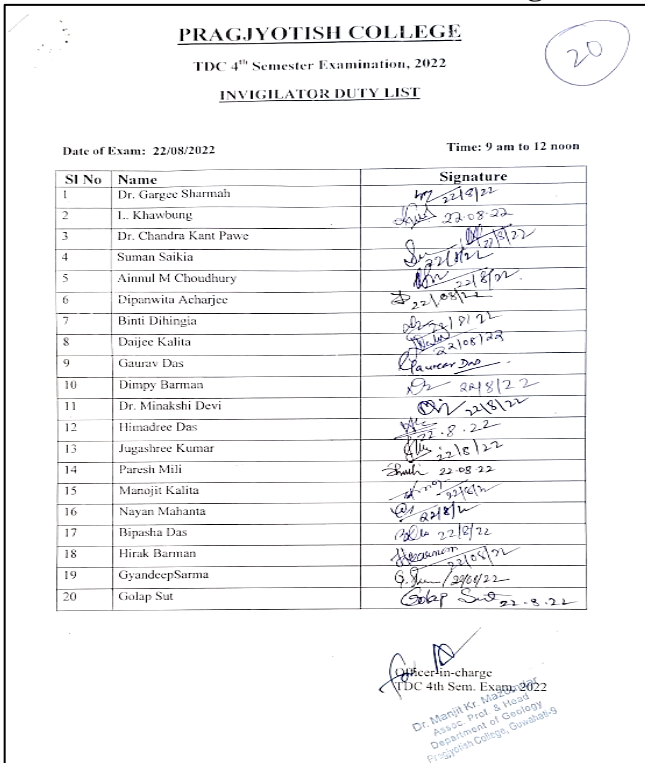 PRAGJYOTISH COLLEGE
20
TDC 4th Semester Examination, 2022
INVIGILATOR DUTY LIST
Date of Exam: 22/08/2022 Time: 9 am to 12 noon
Sl No Name Signature
1 Dr. Gargee Sharmah 22/8/22
2 L. Khawbung 22-08-22
3 Dr. Chandra Kant Pawe 22/8/22
4 Suman Saikia 22/8/22
5 Ainnul M Choudhury 22/8/22.
6 Dipanwita Acharjee 22/08/22
7 Binti Dihingia 22/8/22
8 Daijee Kalita 22/08/22
9 Gaurav Das Gaurav Das
10 Dimpy Barman 22/8/22
11 Dr. Minakshi Devi 22/8/22
12 Himadree Das 22.8.22
13 Jugashree Kumar 22/8/22
14 Paresh Mili 22-08-22
15 Manojit Kalita 22/8/22
16 Nayan Mahanta 22/8/22
17 Bipasha Das 22/8/22
18 Hirak Barman 22/08/22
19 GyandeepSarma 22/08/22
20 Golap Sut Golap Sut 22.8.22
Officer-in-charge
TDC 4th Sem. Exam, 2022
Dr. Manjit Kr. Mazumdar
Assoc. Prof. & Head
Department of Geology
Pragjyotish College, Guwahati-9